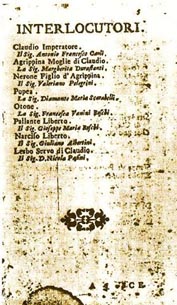 5
INTERLOCUTORI.
Claudio Imperatore.
Il Sig. Antonio Francesco Carli.
Agrippina Moglie di Claudio.
La Sig. Margherita Durastanti.
Nerone Figlio d'Agrippina.
Il Sig. Valeriano Pelegrini.
Popea.
La Sig. Diamante Maria Scarabelli.
Otone.
La Sig. Francesca Vanini Boschi.
Pallante Liberto.
Il Sig. Giuseppe Maria Boschi.
Narciso Liberto.
Il Sig. Giuliano Albertini.
Lesbo Servo di Claudio.
Il Sig. D. Nicola Pasini.